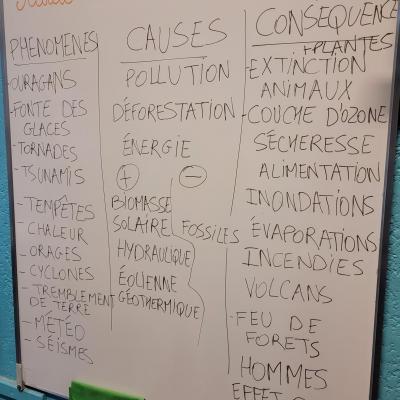 PHENOMENES
-OURAGANS
-FONTE DES
GLACES
-TORNADES
-TSUNAMIS
-TEMPÊTES
-CHALEUR
-ORAGES
-CYCLONES
-TREMBLEMENT
DE TERRE
-MÉTÉO
-SÉISMES
CAUSES
POLLUTION
DÉFORESTATION
ÉNERGIE
+ -
BIOMASSE
SOLAIRE FOSSILES
HYDRAULIQUE
ÉOLIENNE
GÉOTHERMIQUE
CONSEQUENCE
+PLANTES
-EXTINCTION
ANIMAUX
-COUCHE D'OZONE
SÉCHERESSE
ALIMENTATION
INONDATIONS
ÉVAPORATIONS
INCENDIES
VOLCANS
-FEU DE
FORETS
HOMMES
EFFET